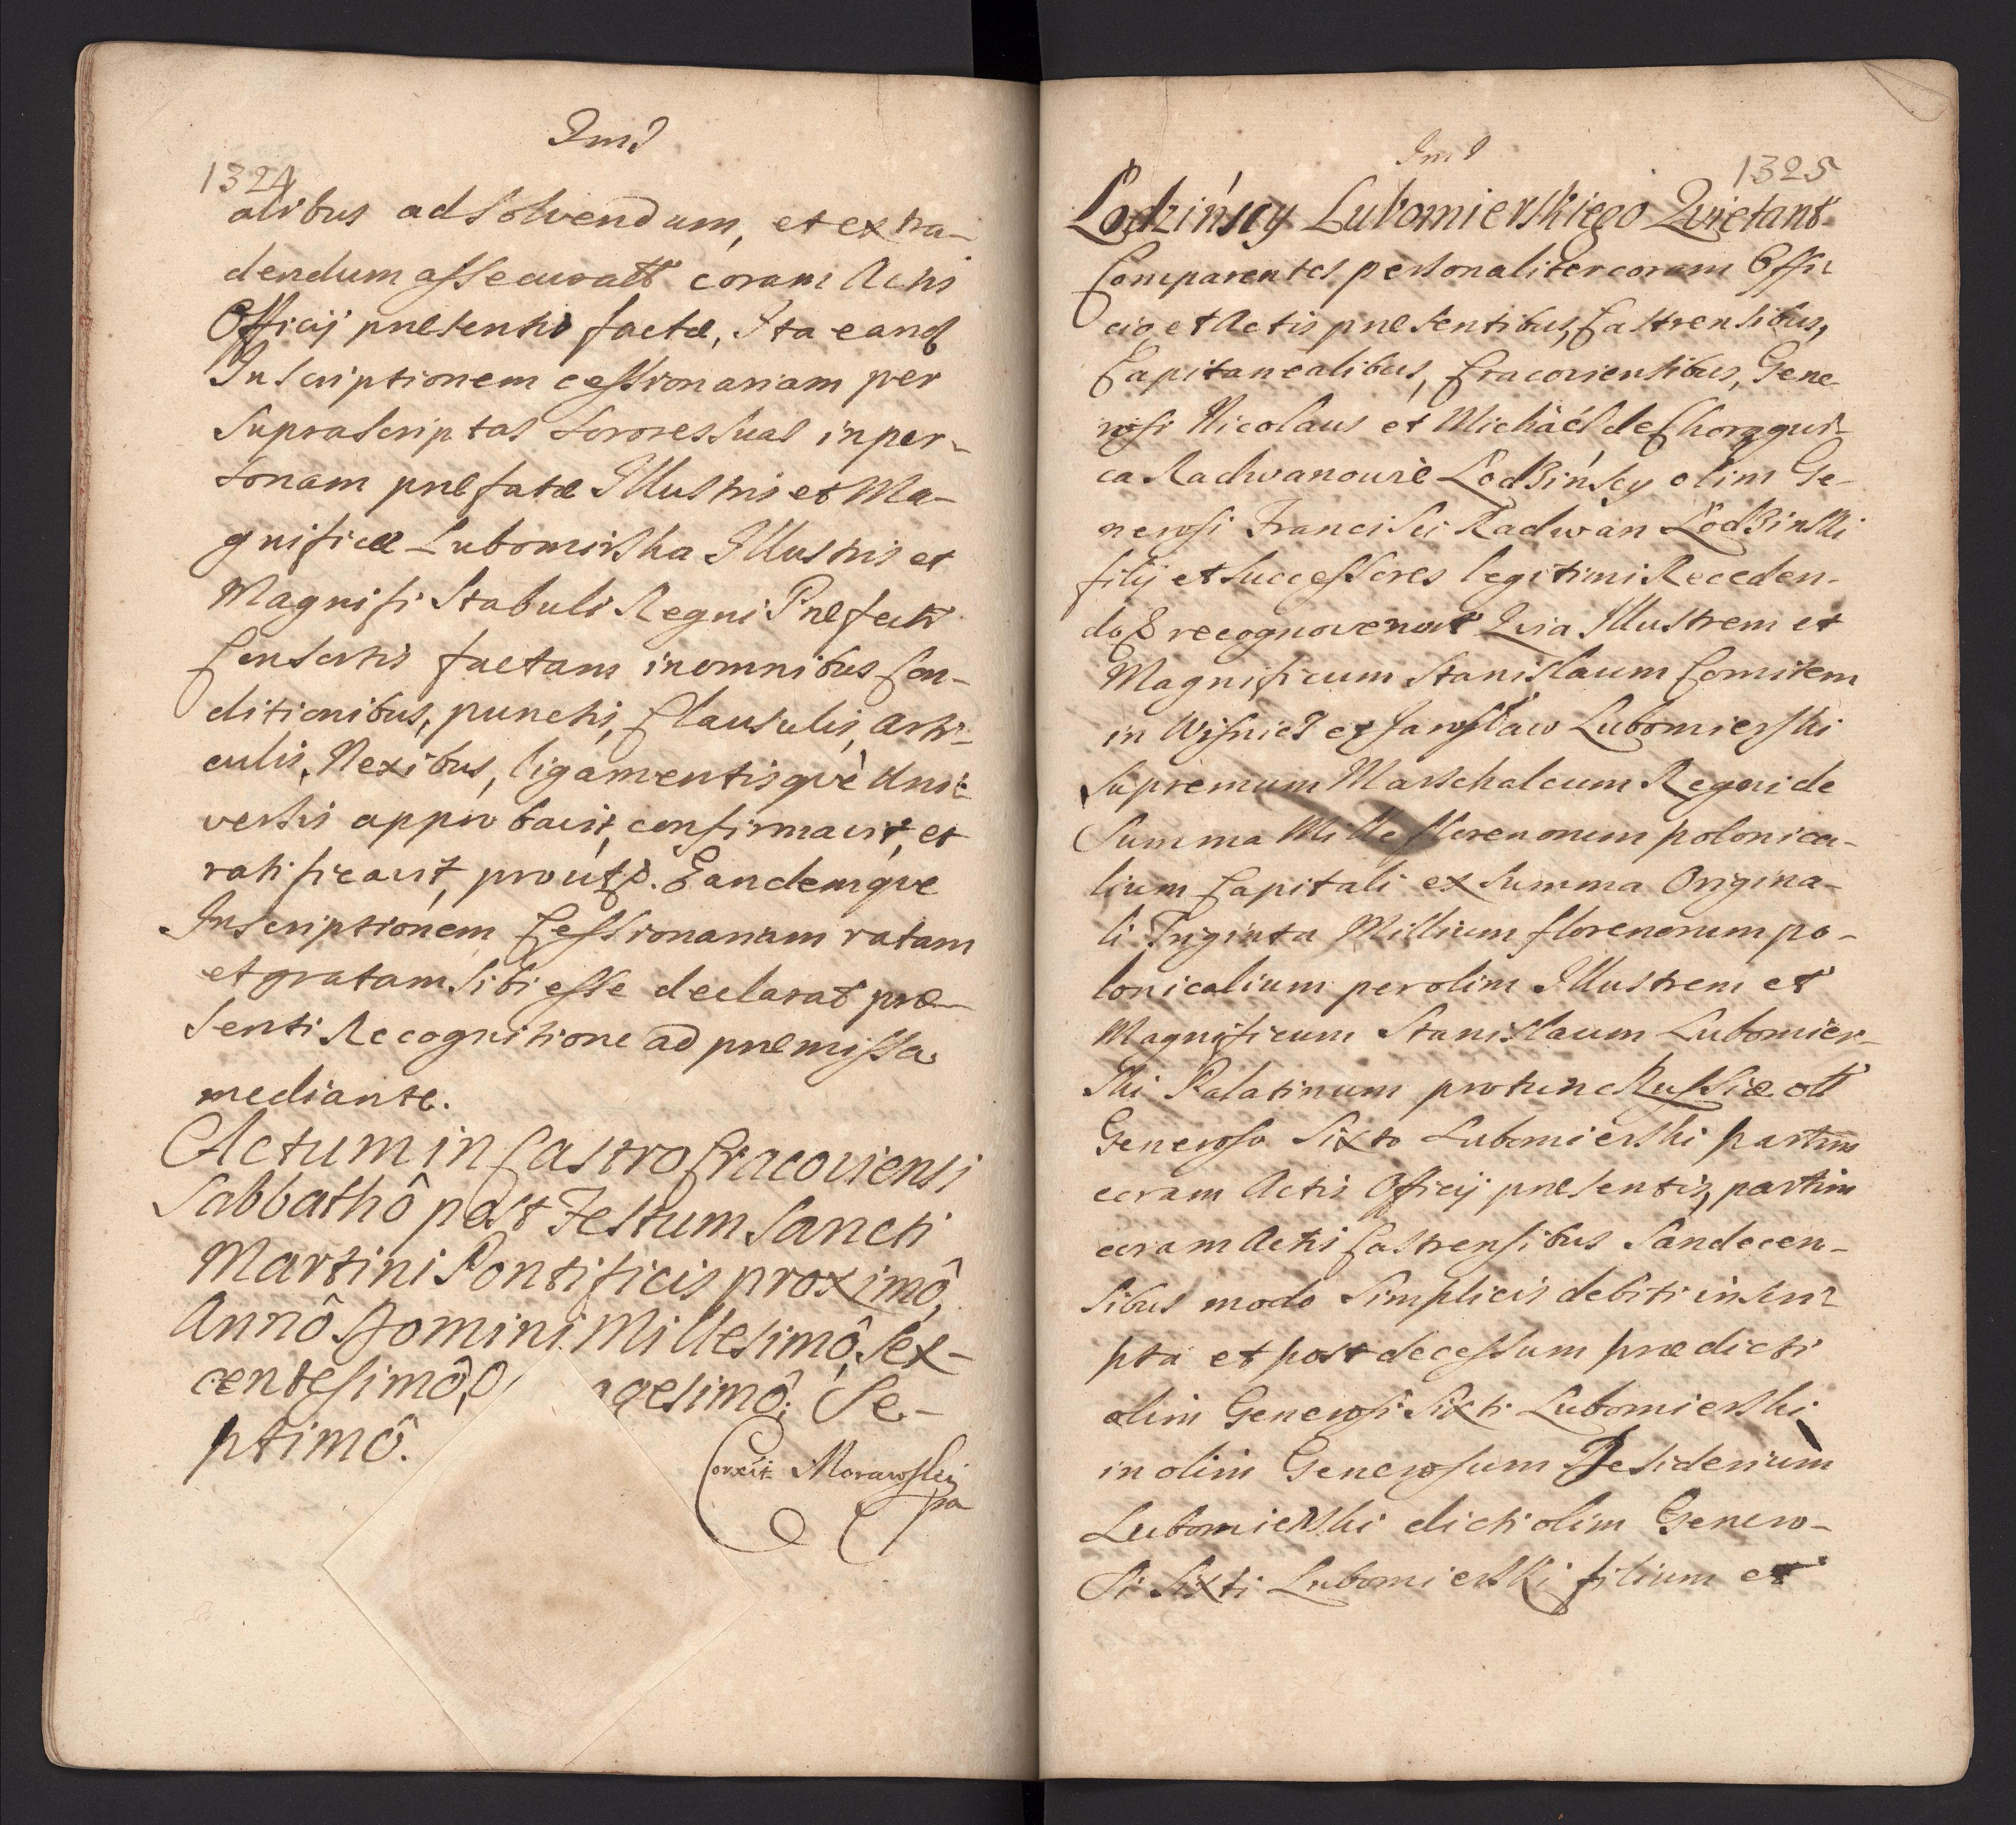 Ind
1324
alibus ad solvendum, et extra-
dendum assecuratt coram Actis
Officij præsentis factæ, Ita eand
Inscriptionem cessionariam per
suprascriptas sorores suas in per-
sonam præfatæ Illustris et Ma-
gnificæ Lubomirska Illustris et
Magnifi Stabuli Regni Præfecti
Consortis factam in omnibus Con-
ditionibus, punctis, Clausulis, arti-
culis, Nexibus, ligamentisqvè Uni-
versis approbavit, confirmavit, et
ratificavit, prout. Eandemqve
Inscriptionem Cessionariam ratam
et gratam sibi esse declarat præ-
senti Recognitione ad præmissa
mediante.
Actum in Castro Cracoviensi
Sabbathô post Festum Sancti
Martini Pontificis proximô,
Annô Domini Millesimô, Sex-
centesimô, gesimô; Se-
ptimô.
Correxit Morawski
mpa
Ind
1325
Lodzińscy Lubomierskiego Qvietant
Comparentes personaliter coram Offi-
cio et Actis præsentibus, Castrensibus,
Capitanealibus, Cracoviensibus, Gene-
rosi Nicolaus et Michäel de Chorągwi-
ca Radwanowie Lodzińscy olim Ge-
nerosi Francisci Radwan Lodzinski
filij et successores legitimi Receden-
do recognoverunt Qvia Illustrem et
Magnificum Stanislaum Comitem
in Wisnicz et Jaroslaw Lubomierski
Supremum Marschalcum Regni de
Summa Mille florenorum polonica-
lium Capitali ex summa Origina-
li Triginta Millium florenorum po-
lonicalium per olim Illustrem et
Magnificum Stanislaum Lubomier-
ski Palatinum protunc Russiæ ott
Generoso Sixto Lubomierski partim
coram Actis Officij præsentis, partim
coram Actis Castrensibus Sandecen-
sibus modo Simplicis debiti inscri-
pta et post decessum prædicti
olim Generosi Sixti Lubomierski
in olim Generosum Desiderium
Lubomierski dicti olim Genero-
si Sixti Lubomierski filium et